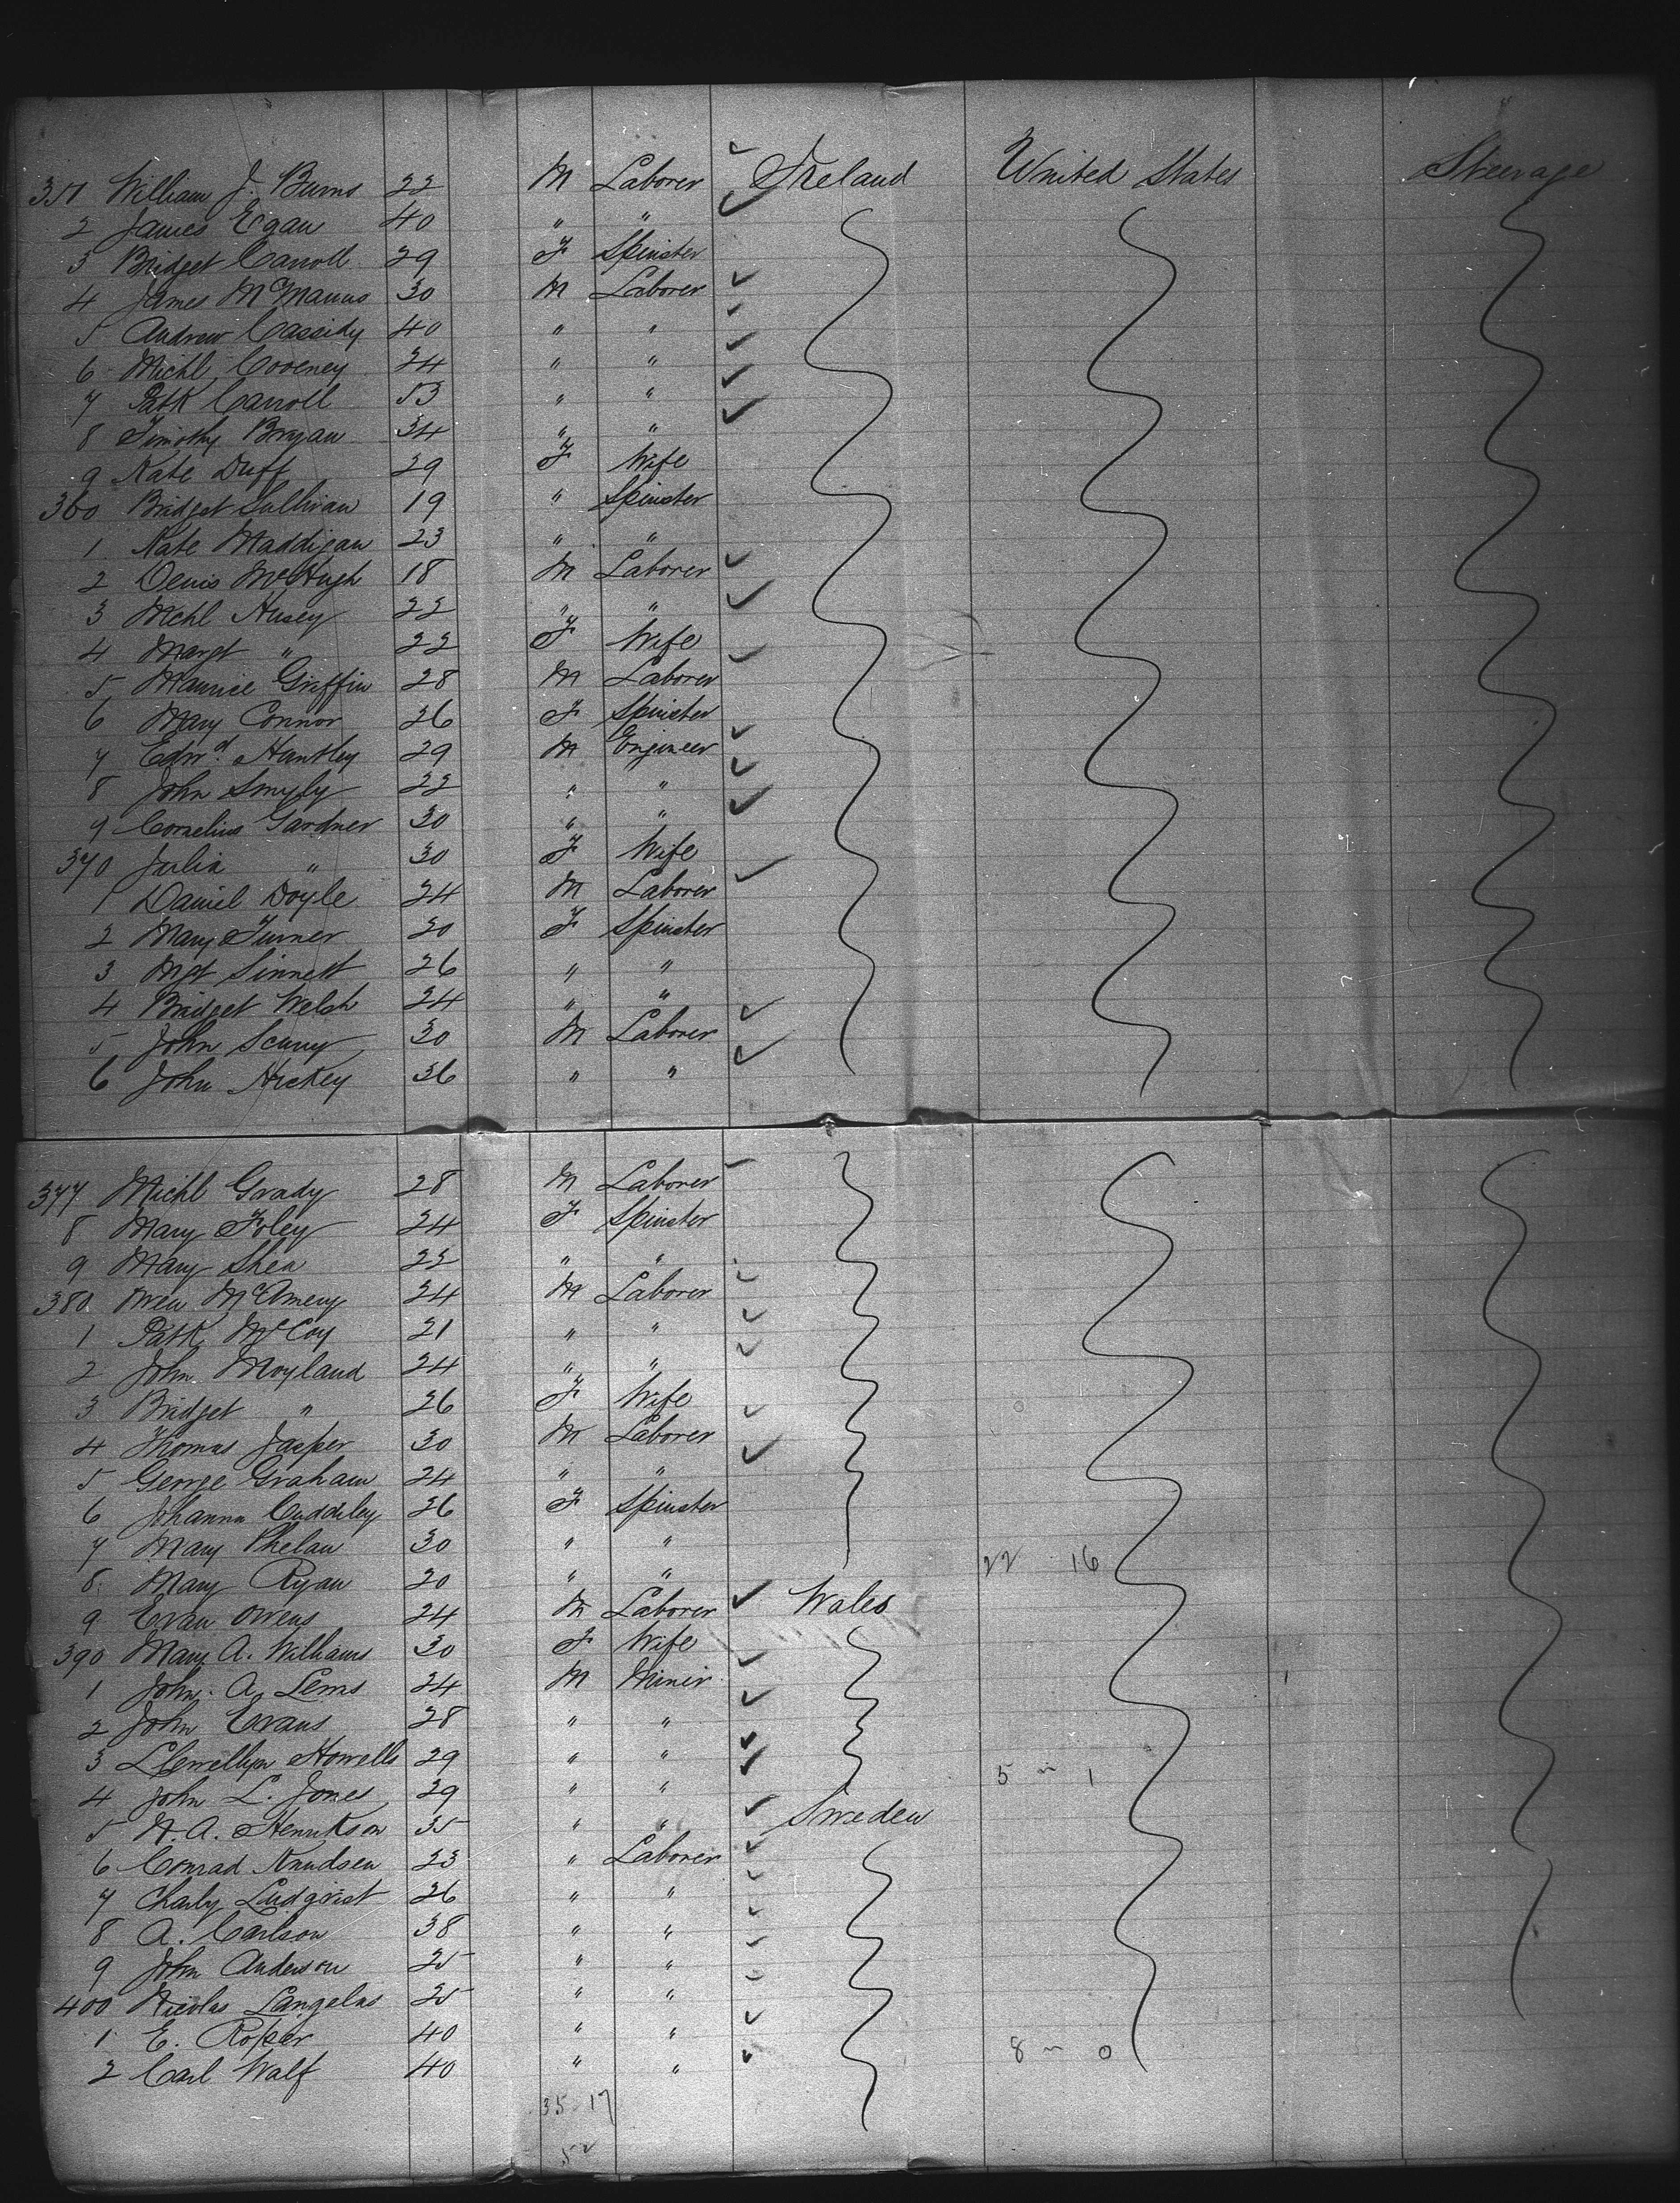 351 William J. Burns 22 M Laborer ✓ Ireland United States Steerage
2 James Egan 40 " " ✓
3 Bridget Carroll 29 F Spinster
4 James McManus 30 M Laborer ✓
5 Andrew Cassidy 40 " " ✓
6 Michl Cooney 24 " " ✓
7 Patk Carroll 53 " " ✓
8 Timothy Bryan 34 " " ✓
9 Kate Duff 29 F Wife
360 Bridget Sullivan 19 " Spinster
1 Kate Maddigan 23 " "
2 Denis McHugh 18 M Laborer ✓
3 Michl Husey 22 " " ✓
4 Margt " 22 F Wife
5 Maurice Griffin 28 M Laborer ✓
6 Mary Connor 26 F Spinster
7 Edwd. Huntley 29 M Engineer ✓
8 John Smyly 22 " " ✓
9 Cornelius Gardner 30 " " ✓
370 Julia " 30 F Wife
1 Daniel Doyle 24 M Laborer ✓
2 Mary Turner 20 F Spinster
3 Mgt Sinnett 26 " "
4 Bridget Welsh 24 " "
5 John Scurry 30 M Laborer ✓
6 John Hickey 36 " " ✓
377 Michl Grady 28 M Laborer ✓
8 Mary Foley 24 F Spinster
9 Mary Shea 22 " "
380 Owen 24 M Laborer ✓
1 Patk McCoy 21 " " ✓
2 John Moyland 24 " " ✓
3 Bridget " 26 F Wife
4 Thomas Jasper 30 M Laborer ✓
5 George Graham 24 " " ✓
6 Johanna Cuddiley 26 F Spinster
7 Mary Phelan 30 " "
8 Mary Ryan 20 " " 22 16
9 Evan Owens 24 M Laborer ✓ Wales
390 Mary A. Williams 30 F Wife
1 John A. Lews 24 M Miner ✓
2 John Evans 28 " " ✓
3 Llewellyn Howells 29 " " ✓
4 John L. Jones 29 " " ✓ 5 " 1
5 N. A. Henrikson 35 " " ✓ Sweden
6 Conrad Knudsen 23 " Laborer ✓
7 Charly Ludqvist 26 " " ✓
8 A. Carlson 38 " " ✓
9 John Anderson 25 " " ✓
400 Nicolas Langelas 25 " " ✓
1 E. Roper 40 " " ✓
2 Carl Walf 40 " " ✓ 8 " 0
35 17
52